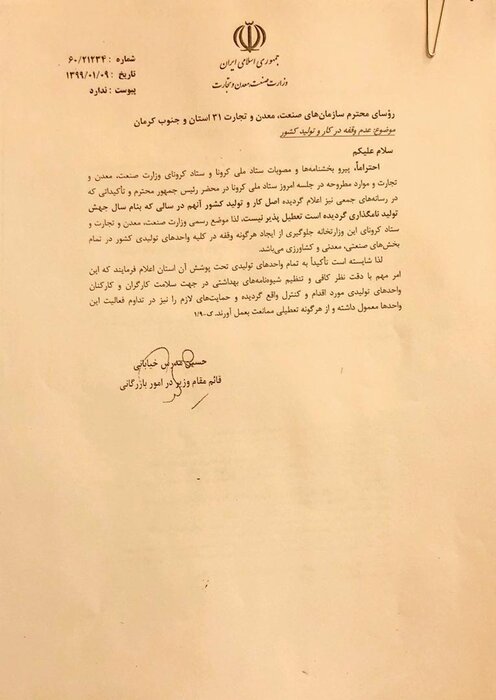 جمهوری اسلامی ایران
وزارت صنعت، معدن و تجارت
شماره : ۶۰/۲۱۲۳۴
تاریخ : ۱۳۹۹/۰۱/۰۹
پیوست : ندارد
رؤسای محترم سازمان‌های صنعت، معدن و تجارت ۳۱ استان و جنوب کرمان
موضوع: عدم وقفه در کار و تولید کشور
سلام علیکم
احتراماً، پیرو بخشنامه‌ها و مصوبات ستاد ملی کرونا و ستاد کرونای وزارت صنعت، معدن و
تجارت و موارد مطروحه در جلسه امروز ستاد ملی کرونا در محضر رئیس جمهور محترم و تأکیداتی که
در رسانه‌های جمعی نیز اعلام گردیده اصل کار و تولید کشور آنهم در سالی که بنام سال جهش
تولید نامگذاری گردیده است تعطیل پذیر نیست. لذا موضع رسمی وزارت صنعت، معدن و تجارت و
ستاد کرونای این وزارتخانه جلوگیری از ایجاد هرگونه وقفه در کلیه واحدهای تولیدی کشور در تمام
بخش‌های صنعتی، معدنی و کشاورزی می‌باشد.
لذا شایسته است تأکیداً به تمام واحدهای تولیدی تحت پوشش آن استان اعلام فرمایند که این
امر مهم با دقت نظر کافی و تنظیم شیوه‌نامه‌های بهداشتی در جهت سلامت کارگران و کارکنان
واحدهای تولیدی مورد اقدام و کنترل واقع گردیده و حمایت‌های لازم را نیز در تداوم فعالیت این
واحدها معمول داشته و از هرگونه تعطیلی ممانعت بعمل آورند.
حسین مدرس خیابانی
قائم مقام وزیر در امور بازرگانی